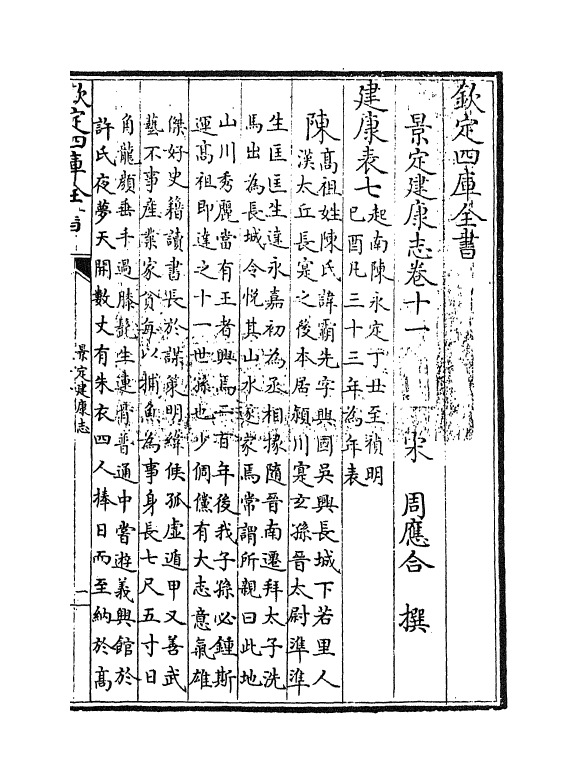 欽定四庫全書
景定建康志卷十一
宋 周應合 撰
建康表七
起南陳永定丁丑至禎明
己酉凡三十三年為年表
陳
高祖姓陳氏諱霸先字興國吳興長城下若里人
漢太丘長寔之後本居潁川寔玄孫晉太尉準準
生匡匡生達永嘉初為丞相掾隨晉南遷拜太子洗
馬出為長城令悅其山水遂家焉常謂所親曰此地
山川秀麗當有王者興焉二百年後我子孫必鍾斯
運高祖即達之十一世孫也少倜儻有大志意氣雄
傑好史籍讀書長於謀策明緯候孤虛遁甲又善武
藝不事產業家貧每以捕魚為事身長七尺五寸日
角龍顔垂手過膝髭生連骨普通中嘗遊義興館於
許氏夜夢天開數丈有朱衣四人捧日而至納於高
欽定四庫全書
景定建康志
一